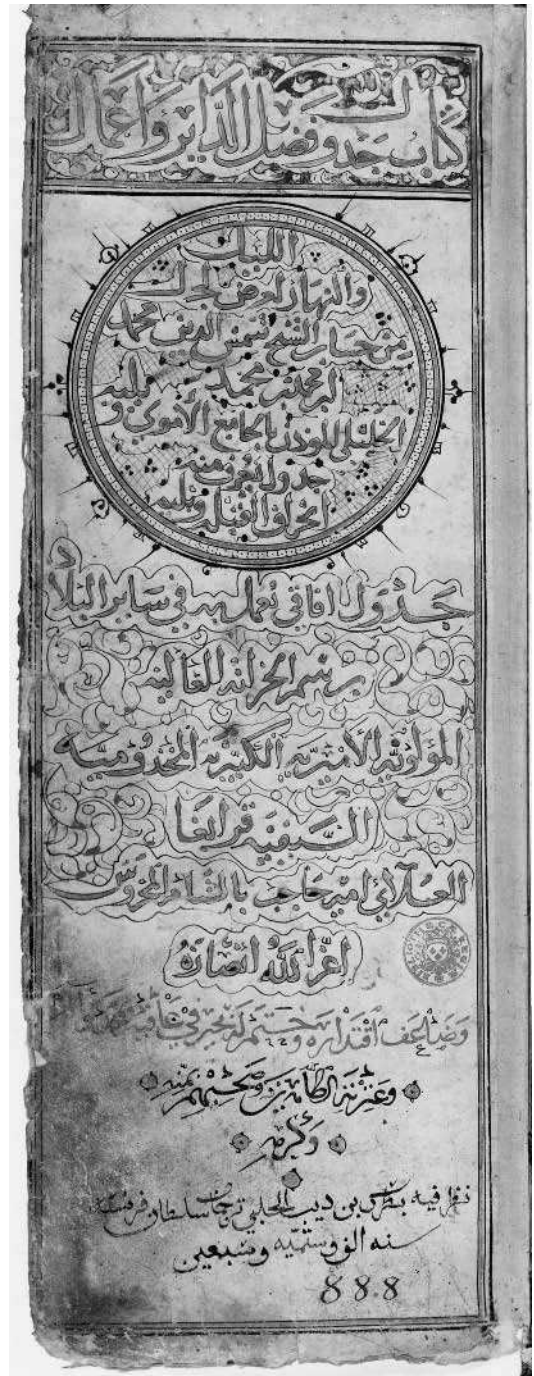 كتاب جدول فضل الداير وأعمال
الليل
والنهار لعرض لح ل
من حساب الشيخ شمس الدين محمد
بن محمد بن محمد
الخليلي المؤذن بالجامع الأموي و يليه
جدول يعرف منه
انحراف القبلة ويليه
جدول افاقي يعمل به في ساير البلاد
برسم الخزانة العالية
المولوية الأميرية الكبيرية المخدومية
السيفية قرابغا
العلائي امير حاجب بالشام المحروس
اعز الله انصاره
وضاعف اقتداره وختم له بخير في عافية
وعترته الطاهرين وصحبهم بمنه
وكرمه
نظر فيه بطرس بن ديب الحلبي ترجمان سلطان فرنسه
سنه الف وستميه وسبعين
888